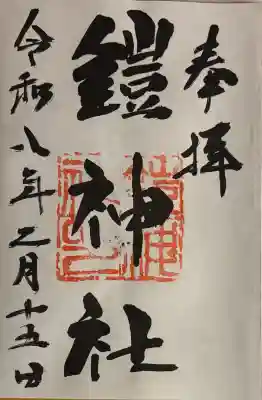 奉拝
鎧神社
令和八年乙月十五日